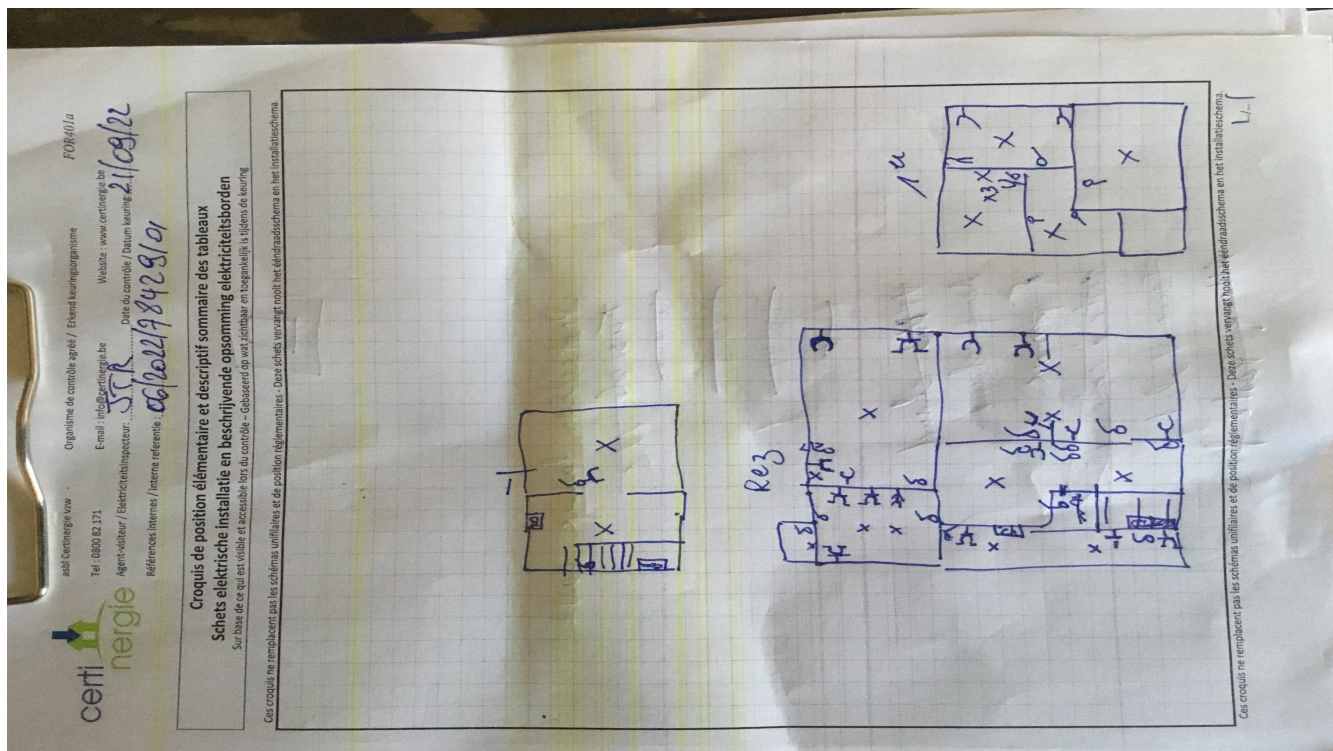 certinergie
asbl Certinergie vzw . Organisme de contrôle agréé / Erkend keuringsorganisme FOR401a
Tel : 0800 82 171 E-mail : info@certinergie.be Website : www.certinergie.be
Agent-visiteur / Elektriciteitsinspecteur: JJR Date du contrôle / Datum keuring: 21/09/22
Références internes / Interne referentie : 06/2022/78429/01
Croquis de position élémentaire et descriptif sommaire des tableaux
Schets elektrische installatie en beschrijvende opsomming elektriciteitsborden
Sur base de ce qui est visible et accessible lors du contrôle – Gebaseerd op wat zichtbaar en toegankelijk is tijdens de keuring
Ces croquis ne remplacent pas les schémas unifilaires et de position réglementaires - Deze schets vervangt nooit het ééndraadsschema en het installatieschema.
Rez
1er
x3
Ces croquis ne remplacent pas les schémas unifilaires et de position réglementaires - Deze schets vervangt nooit het ééndraadsschema en het installatieschema.